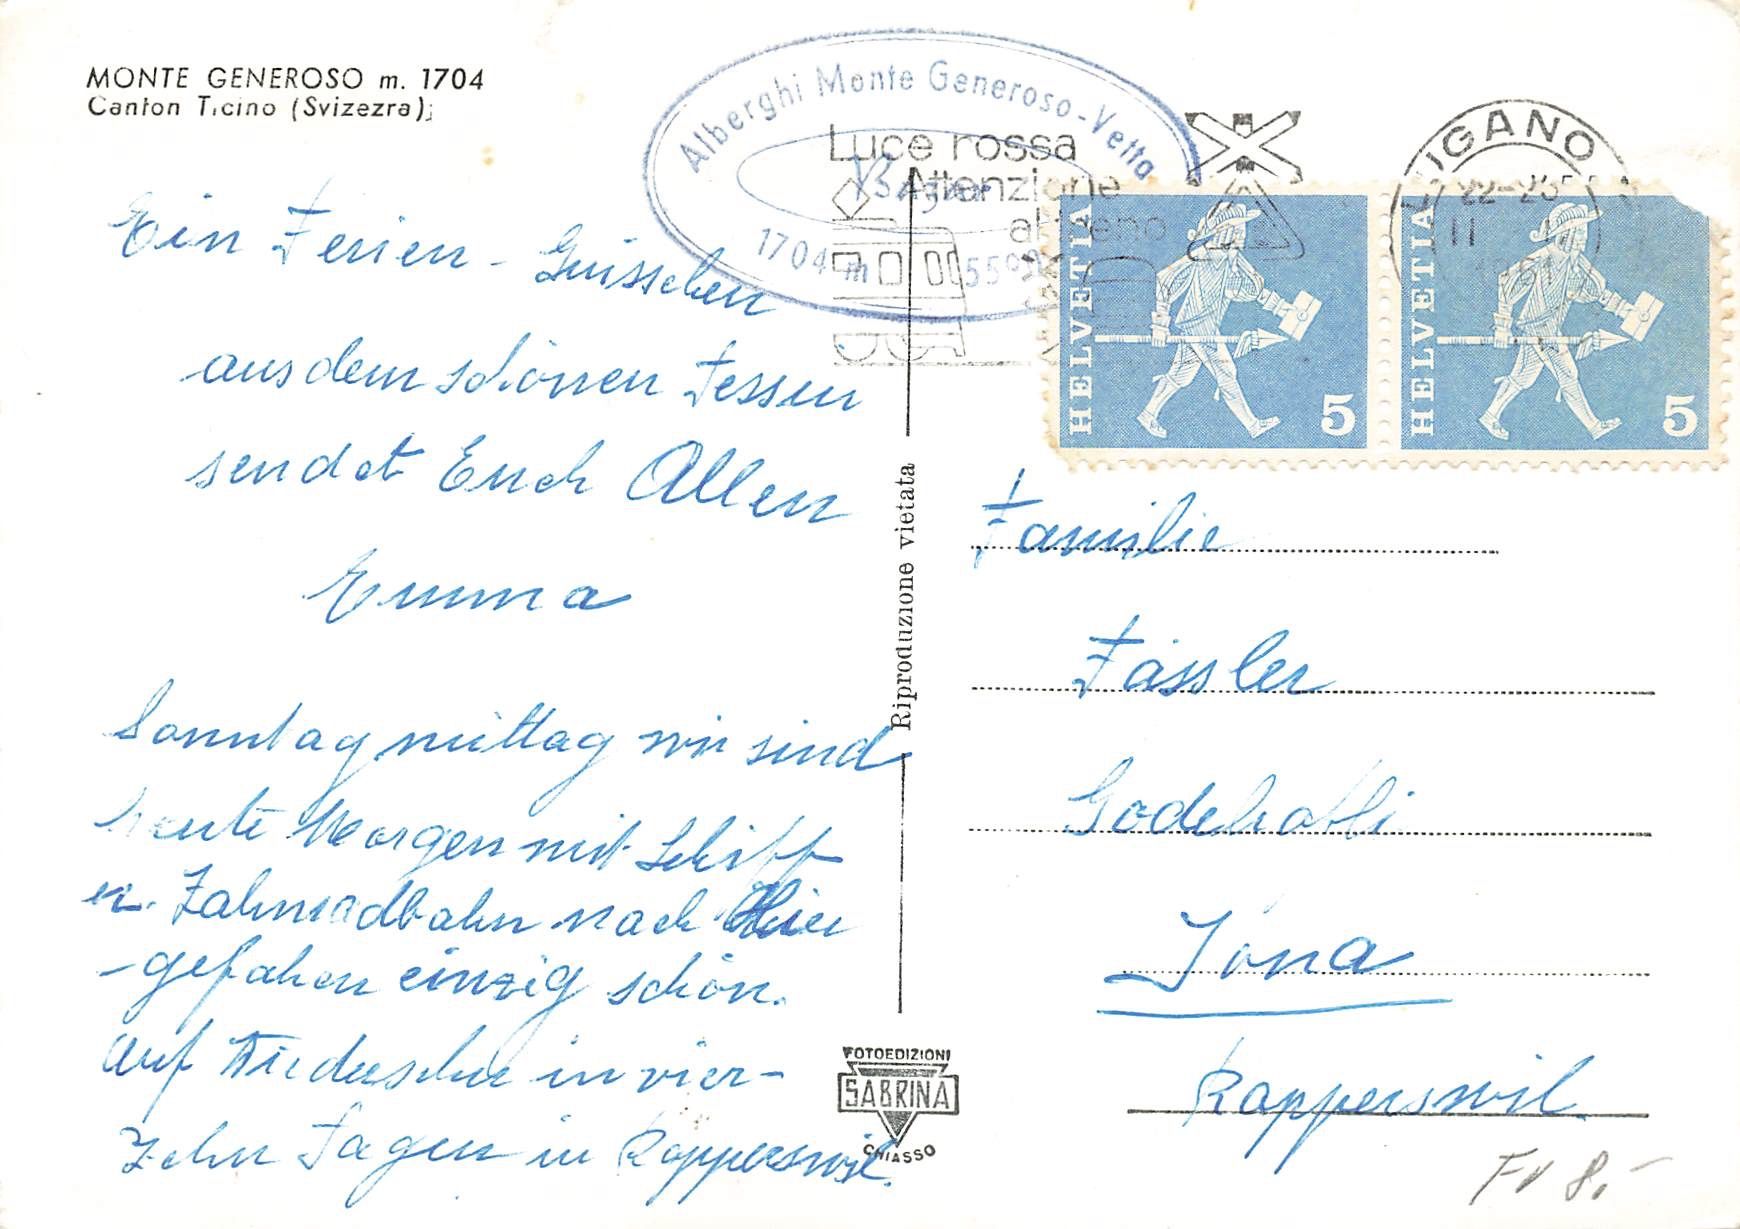 MONTE GENEROSO m. 1704
Canton Ticino (Svizezra)
Alberghi Monte Generoso-Vetta
1704 m
Luce rossa
Attenzione
al treno
LUGANO
22-23
HELVETIA
5
HELVETIA
5
Ein Ferien - Grüsschen
aus dem schönen Tessin
sendet Euch Allen
Emma
Sonntag mittag wir sind
heute Morgen mit Schiff
u. Zahnradbahn nach Hier
gefahren einzig schön.
Auf Wiedersehn in vier-
zehn Tagen in Rapperswil.
Riproduzione vietata
FOTOEDIZIONI
SABRINA
CHIASSO
Familie
Fässler
Jona
Rapperswil.
8.-